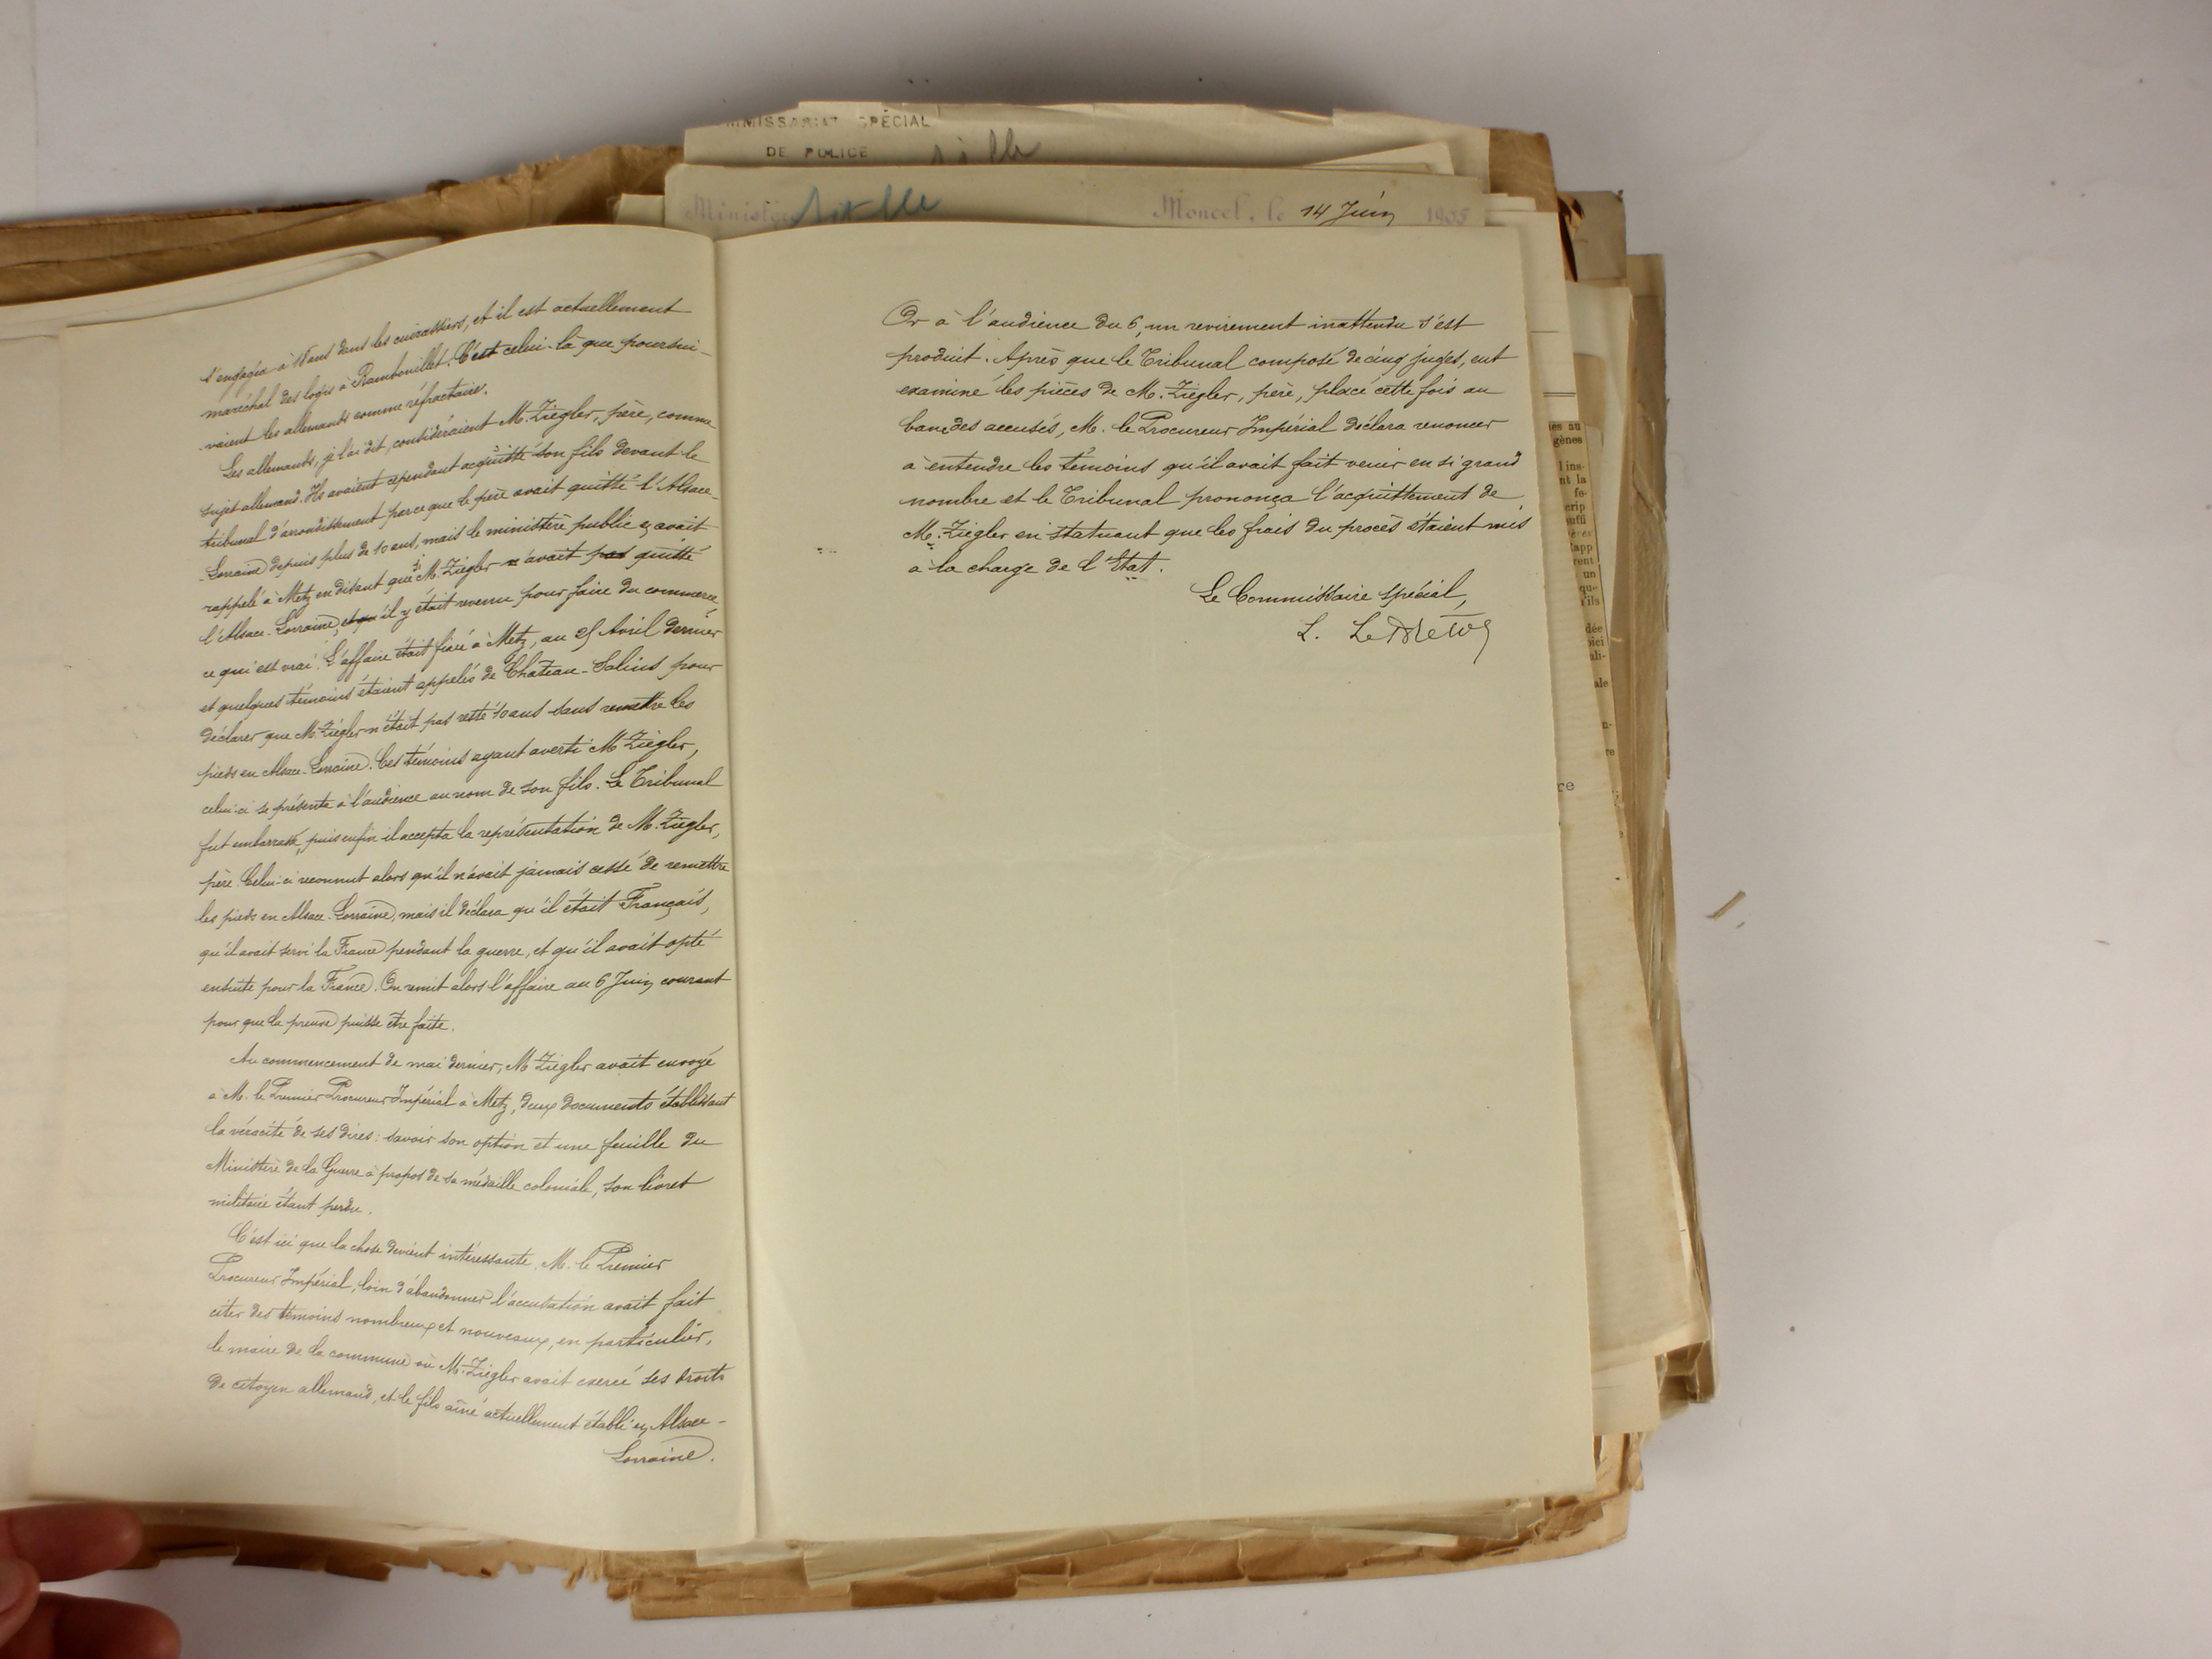 MMISSARIAT SPÉCIAL
DE POLICE
Moncel, le 14 Juin 1905
s'engagea à 18 ans dans les cuirassiers, et il est actuellement
maréchal des logis à Rambouillet. C'est celui-là que poursui-
vaient les allemands comme réfractaire.
Les allemands, je l'ai dit, considéraient M. Ziegler, père, comme
sujet allemand. Ils avaient cependant acquitté son fils devant le
tribunal d'arrondissement parce que le père avait quitté l'Alsace-
-Lorraine depuis plus de 10 ans, mais le ministère public en avait
rappelé à Metz en disant que si M. Ziegler avait quitté
l'Alsace-Lorraine, il y était revenu pour faire du commerce,
ce qui est vrai. L'affaire était fixée à Metz, au 25 Avril dernier
et quelques témoins étaient appelés de Château-Salins pour
déclarer que M. Ziegler n'était pas resté 10 ans sans remettre les
pieds en Alsace-Lorraine. Ces témoins ayant averti M Ziegler,
celui-ci se présenta à l'audience au nom de son fils. Le Tribunal
fut embarrassé, puis enfin il accepta la représentation de M. Ziegler,
père. Celui-ci reconnut alors qu'il n'avait jamais cessé de remettre
les pieds en Alsace-Lorraine, mais il déclara qu'il était Français,
qu'il avait servi la France pendant la guerre, et qu'il avait opté
ensuite pour la France. On remit alors l'affaire au 6 Juin courant
pour que la preuve puisse être faite.
Au commencement de mai dernier, M Ziegler avait envoyé
à M. le Premier Procureur Impérial à Metz, deux documents établissant
la véracité de ses dires: savoir son option et une feuille du
Ministère de la Guerre à propos de sa médaille coloniale, son livret
militaire étant perdu.
C'est ici que la chose devient intéressante. M. le Premier
Procureur Impérial, loin d'abandonner l'accusation avait fait
citer des témoins nombreux et nouveaux, en particulier,
le maire de la commune où M. Ziegler avait exercé ses droits
de citoyen allemand, et le fils aîné actuellement établi en Alsace-
Lorraine.
Or à l'audience du 6, un revirement inattendu s'est
produit. Après que le Tribunal composé de cinq juges, eut
examiné les pièces de M. Ziegler, père, placé cette fois au
banc des accusés, M. le Procureur Impérial déclara renoncer
à entendre les témoins qu'il avait fait venir en si grand
nombre et le Tribunal prononça l'acquittement de
M. Ziegler en statuant que les frais du procès étaient mis
à la charge de l'Etat.
Le Commissaire spécial,